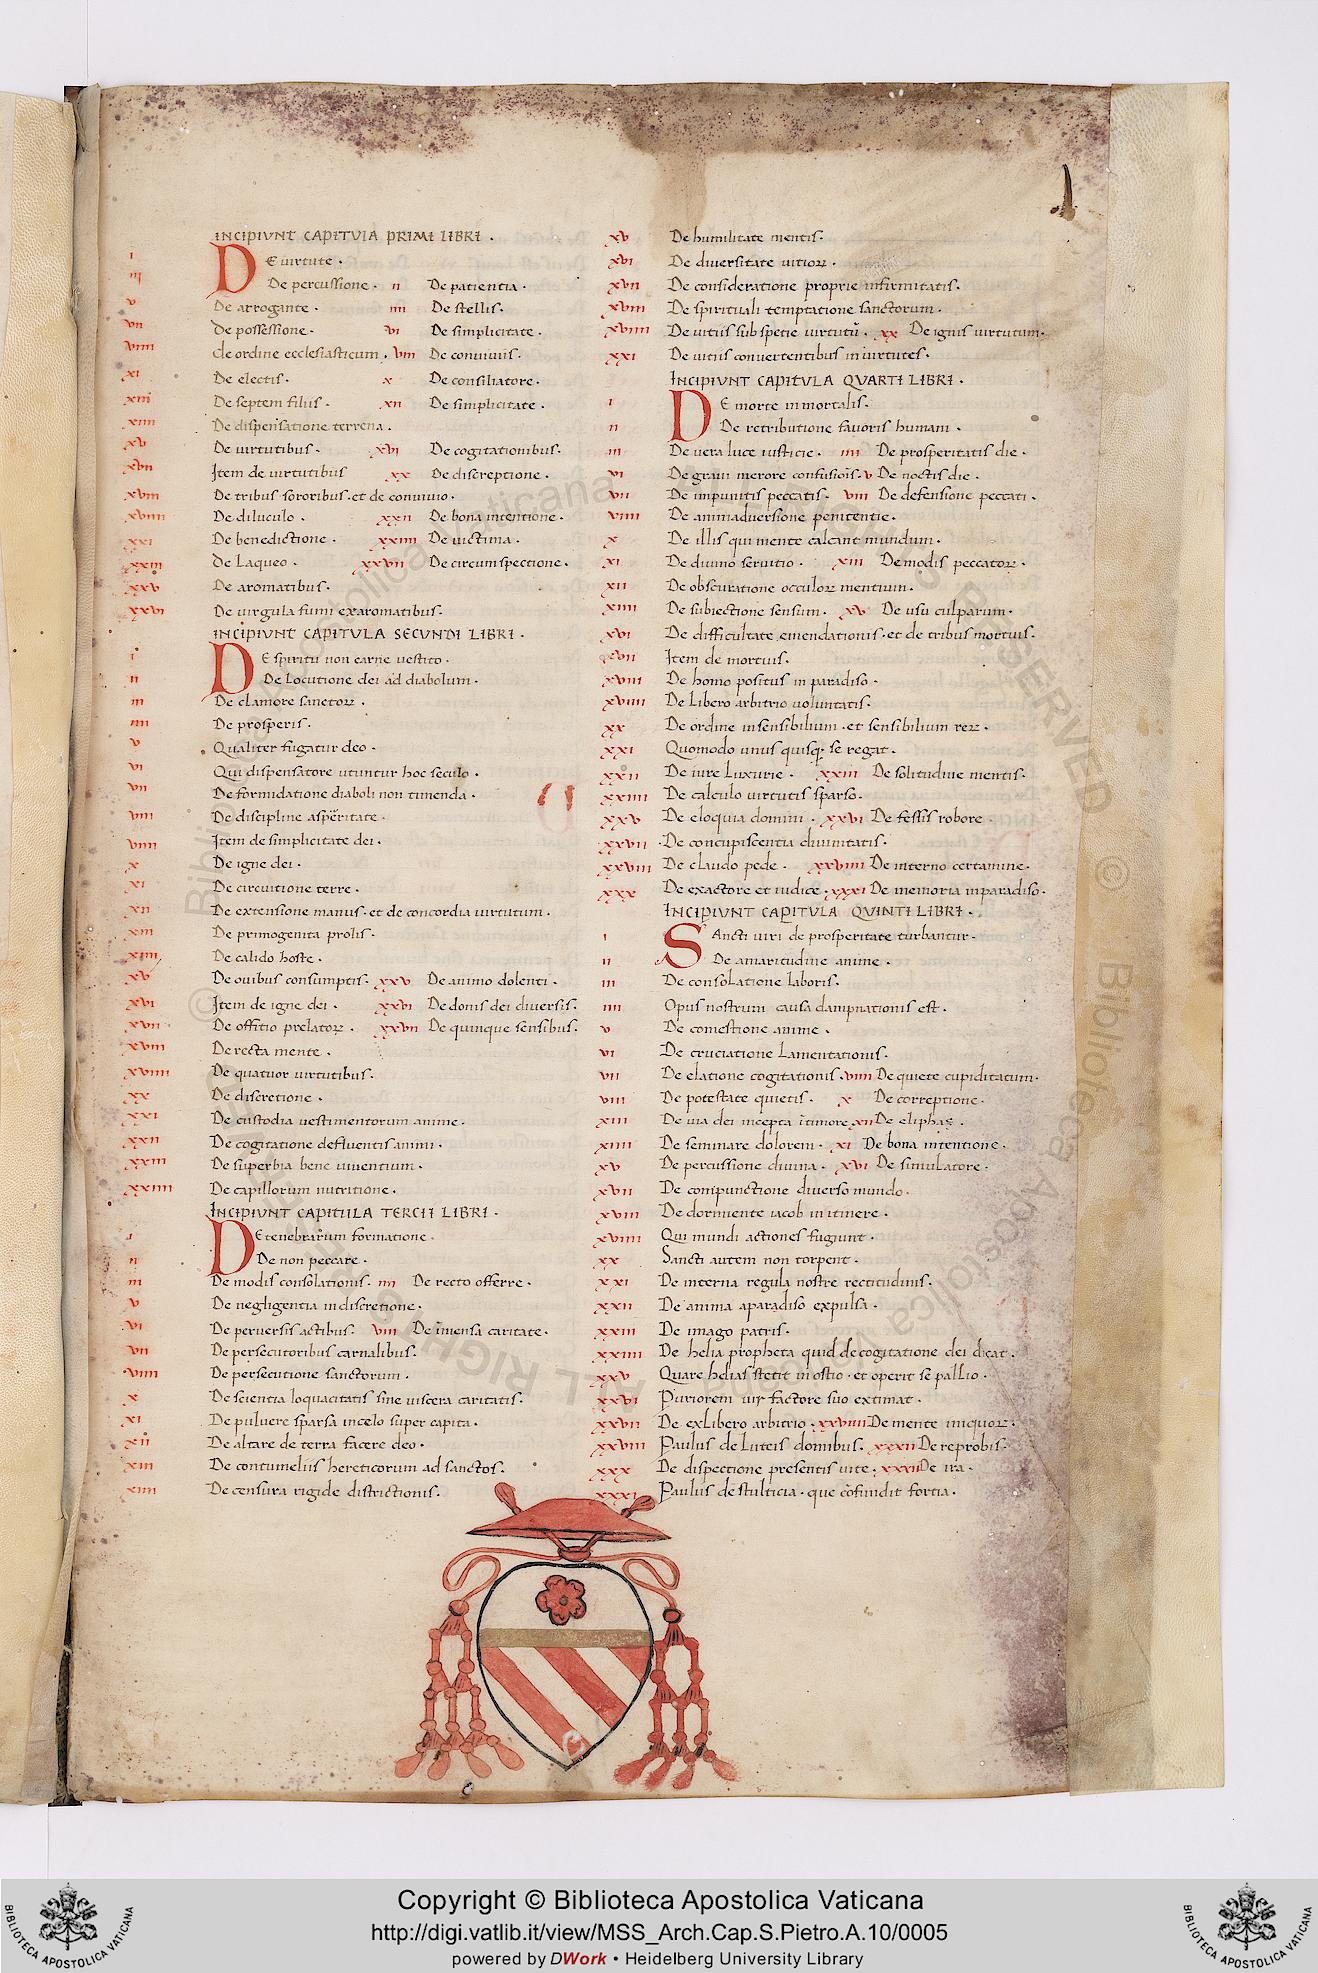 INCIPIVNT CAPITVLA PRIMI LIBRI .
i DE virtute .
iii De percussione . ii De patientia .
v De arrogante . iiii De stellis .
vii De possessione . vi De simplicitate .
viiii de ordine ecclesiasticum . viii De conviviis .
xi De electis . x De consiliatore .
xiii De septem filiis . xii De simplicitate .
xiiii De dispensatione terrena .
xv De virtutibus . xvi De cogitationibus .
xvii Item de virtutibus xx De discreptione .
xviii De tribus sororibus . et de convivio .
xviiii De diluculo . xxii De bona intentione .
xxi De benedictione . xxiiii De victima .
xxiii de Laqueo . xxvii De circumspectione .
xxv De aromatibus .
xxvi De virgula fumi exaromatibus .
INCIPIVNT CAPITVLA SECUNDI LIBRI .
i DE spiritu non carne vestito .
ii De Locutione dei ad diabolum .
iii De clamore sanctoꝝ .
iiii De prosperis .
v Qualiter fugatur deo .
vi Qui dispensatore utuntur hoc seculo .
vii De formidatione diaboli non timenda .
viii De discipline asperitate .
viiii Item de simplicitate dei .
x De igne dei .
xi De circuitione terre .
xii De extensione manus . et de concordia virtutum .
xiii De primogenita prolis .
xiiii De calido hoste .
xv De ovibus consumptis . xxv De animo dolenti .
xvi Item de igne dei . xxvi De donis dei diversis .
xvii De offitio prelatoꝝ . xxvii De quinque sensibus .
xviii De recta mente .
xviiii De quatuor virtutibus .
xx De discretione .
xxi De custodia vestimentorum anime .
xxii De cogitatione defluentis animi .
xxiii De superbia bene viventium .
xxiiii De capillorum nutritione .
INCIPIUNT CAPITULA TERCII LIBRI .
i DE tenebrarum formatione .
ii De non peccare .
iii De modis consolationis . iiii De recto offerre .
v De negligentia indiscretione .
vi De perversis actibus . viii De imensa caritate .
vii De persecutoribus carnalibus .
viiii De persecutione sanctorum .
x De scientia loquacitatis sine viscera caritatis .
xi De pulvere sparsa incelo super capita .
xii De altare de terra facere deo .
xiii De contumeliis hereticorum ad sanctos .
xiiii De censura rigide districtionis .
xv De humilitate mentis .
xvi De diversitate vitioꝝ .
xvii De consideratione proprie infirmitatis .
xviii De spirituali temptatione sanctorum .
xviiii De vitiis sub spetie virtutū . xx De ignis virtutum .
xxi De vitiis convertentibus in virtutes .
INCIPIUNT CAPITULA QVARTI LIBRI .
i DE morte inmortalis .
ii De retributione favoris humani .
iii De vera luce iusticie . iiii De prosperitatis die .
vi De gravi merore confusiois . v De noctis die .
vii De impunitis peccatis . viii De defensione peccati .
viiii De animadversione penitentie .
x De illis qui mente calcant mundum .
xi De divino servitio . xiii De modis peccatoꝝ .
xii De obscuratione occuloꝝ mentium .
xiiii De subiectione sensum . xv De usu culparum .
xvi De difficultate emendationis . et de tribus mortuis .
xvii Item de mortuis .
xviii De homo positus in paradiso .
xviiii De Libero arbitrio voluntatis .
xx De ordine insensibilium . et sensibilium reꝝ .
xxi Quomodo unus quisq; se regat .
xxii De iure Luxurie . xxiii De solitudine mentis .
xxiiii De calculo virtutis sparso .
xxv De eloquia domini . xxvi De fessis robore .
xxvii De concupiscentia divinitatis .
xxviii De claudo pede . xxviiii De interno certamine .
xxx De exactore et iudice . xxxi De memoria inparadiso .
INCIPIUNT CAPITULA QUINTI LIBRI .
i SAncti viri de prosperitate turbantur .
ii De amaritudine anime .
iii De consolatione laboris .
iiii Opus nostrum causa dampnationis est .
v De comestione anime .
vi De cruciatione Lamentationis .
vii De elatione cogitationis . viiii De quiete cupiditatum .
viii De potestate quietis . x De correptione .
xiii De via dei incepta ītimore xii De eliphaẓ .
xiiii De seminare dolorem . xi De bona intentione .
xv De percussione divina . xvi De simulatore .
xvii De conpunctione diverso mundo .
xviii De dormiente iacob in itinere .
xviiii Qui mundi actiones fugiunt .
xx Sancti autem non torpent .
xxi De interna regula nostre rectitudinis .
xxii De anima aparadiso expulsa .
xxiii De imago patris .
xxiiii De helia propheta quid de cogitatione dei dicat .
xxv Quare helias stetit in ostio . et operit se pallio .
xxvi Puriorem vir factore suo extimat .
xxvii De exlibero arbitrio . xxviiii De mente iniquoꝝ .
xxviii Paulus de Luteis domibus . xxxii De reprobis .
xxx De dispectione presentis vite . xxxiii De ira .
xxxi Paulus de stulticia . que cōfundit fortia .
Copyright © Biblioteca Apostolica Vaticana
http://digi.vatlib.it/view/MSS_Arch.Cap.S.Pietro.A.10/0005
powered by DWork • Heidelberg University Library
BIBLIOTECA APOSTOLICA VATICANA
BIBLIOTECA APOSTOLICA VATICANA